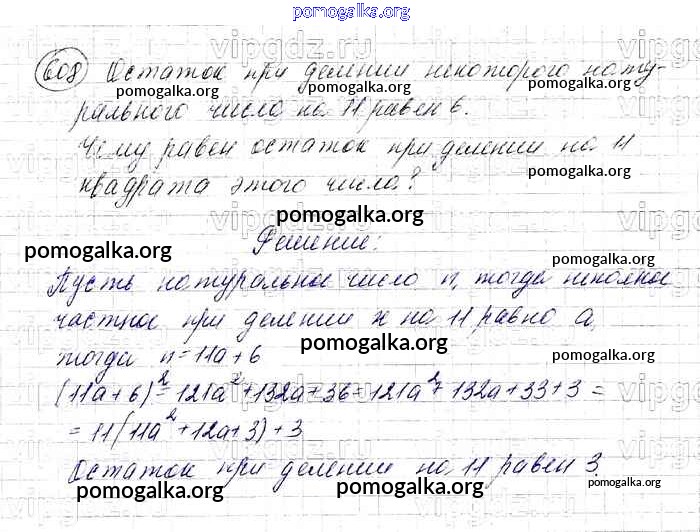 pomogalka.org
vipgdz.ru
608 Остаток при делении некоторого нату-
pomogalka.org pomogalka.org
рального числа на 11 равен 6.
Чему равен остаток при делении на 11
pomogalka.org pomogalka.org
квадрата этого числа?
pomogalka.org
vipgdz.ru
Решение:
pomogalka.org pomogalka.org
Пусть натуральное число n, тогда неполное
частное при делении n на 11 равно a,
pomogalka.org
тогда n = 11a + 6
pomogalka.org
(11a+6)² = 121a² + 132a + 36 = 121a² + 132a + 33 + 3 =
= 11(11a² + 12a + 3) + 3
pomogalka.org pomogalka.org
Остаток при делении на 11 равен 3.
pomogalka.org pomogalka.org pomogalka.org